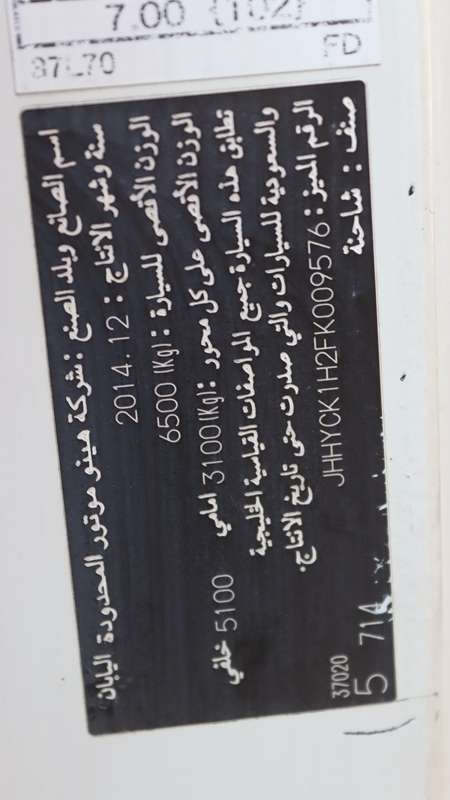 7.00 (102)
37L70 FD
اسم الصانع وبلد الصنع : شركة هينو موتور المحدودة اليابان
سنة وشهر الانتاج : 2014.12
الوزن الأقصى للسيارة : 6500 (Kg)
الوزن الأقصى على كل محور : 3100(Kg) امامي 5100 خلفي
تطابق هذه السيارة جميع المواصفات القياسية الخليجية
والسعودية للسيارات والتي صدرت حتى تاريخ الانتاج.
الرقم المميز : JHHYCK1H2FK009576
صنف : شاحنة
37020
5 714